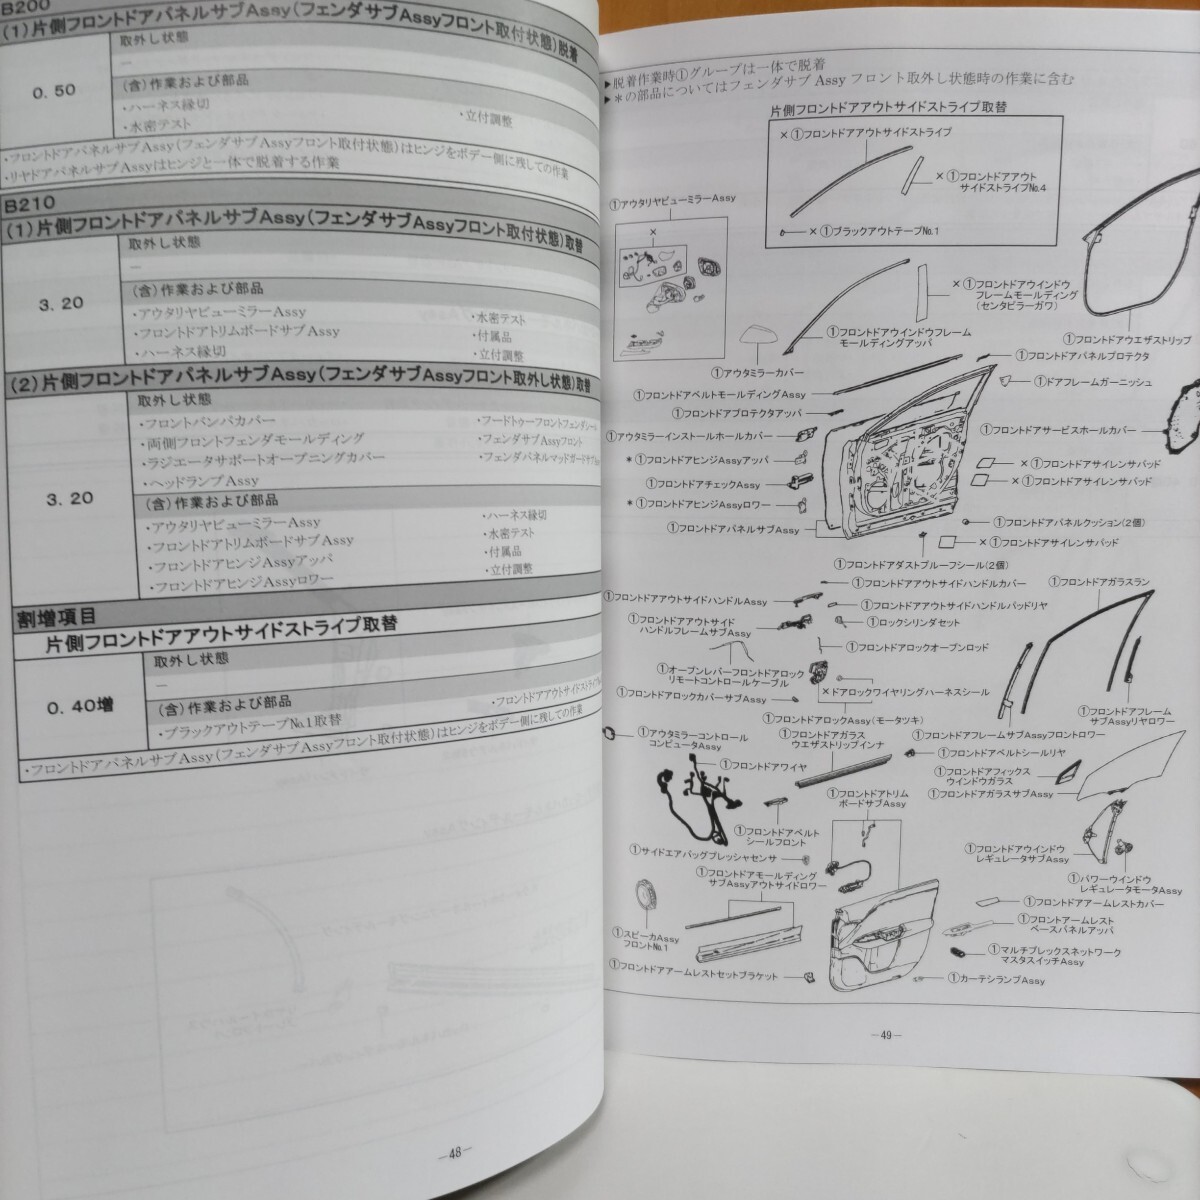 B200
(1)片側フロントドアパネルサブAssy(フェンダサブAssyフロント取付状態)脱着
取外し状態
－
0.50
(含)作業および部品
・ハーネス縁切
・立付調整
・水密テスト
・フロントドアパネルサブAssy(フェンダサブAssyフロント取付状態)はヒンジをボデー側に残しての作業
・リヤドアパネルサブAssyはヒンジと一体で脱着する作業
B210
(1)片側フロントドアパネルサブAssy(フェンダサブAssyフロント取付状態)取替
取外し状態
－
3.20
(含)作業および部品
・アウタリヤビューミラーAssy
・水密テスト
・フロントドアトリムボードサブAssy
・付属品
・ハーネス縁切
・立付調整
(2)片側フロントドアパネルサブAssy(フェンダサブAssyフロント取外し状態)取替
取外し状態
・フロントバンパカバー
・フードトゥーフロントフェンダシール
・両側フロントフェンダモールディング
・フェンダサブAssyフロント
・ラジエータサポートオープニングカバー
・フェンダパネルマッドガードサブ
・ヘッドランプAssy
3.20
(含)作業および部品
・アウタリヤビューミラーAssy
・ハーネス縁切
・フロントドアトリムボードサブAssy
・水密テスト
・フロントドアヒンジAssyアッパ
・付属品
・フロントドアヒンジAssyロワー
・立付調整
割増項目
片側フロントドアアウトサイドストライプ取替
取外し状態
－
0.40増
(含)作業および部品
・フロントドアアウトサイドストライプ
・ブラックアウトテープNo.1取替
・フロントドアパネルサブAssy(フェンダサブAssyフロント取付状態)はヒンジをボデー側に残しての作業
－48－
▶脱着作業時①グループは一体で脱着
▶＊の部品についてはフェンダサブ Assy フロント取外し状態時の作業に含む
片側フロントドアアウトサイドストライプ取替
×①フロントドアアウトサイドストライプ
×①フロントドアアウト
サイドストライプNo.4
×①ブラックアウトテープNo.1
①アウタリヤビューミラーAssy
×
×①フロントドアウインドウ
フレームモールディング
(センタピラーガワ)
①フロントドアウインドウフレーム
モールディングアッパ
①フロントドアウエザストリップ
①アウタミラーカバー
①フロントドアパネルプロテクタ
①フロントドアベルトモールディングAssy
①ドアフレームガーニッシュ
①フロントドアプロテクタアッパ
①アウタミラーインストールホールカバー
①フロントドアサービスホールカバー
＊①フロントドアヒンジAssyアッパ
×①フロントドアサイレンサパッド
①フロントドアチェックAssy
×①フロントドアサイレンサパッド
＊①フロントドアヒンジAssyロワー
①フロントドアパネルサブAssy
①フロントドアパネルクッション(2個)
×①フロントドアサイレンサパッド
①フロントドアダストプルーフシール(2個)
①フロントドアアウトサイドハンドルカバー
①フロントドアガラスラン
①フロントドアアウトサイドハンドルAssy
①フロントドアアウトサイドハンドルパッドリヤ
①フロントドアアウトサイド
ハンドルフレームサブAssy
①ロックシリンダセット
①フロントドアロックオープンロッド
①オープンレバーフロントドアロック
リモートコントロールケーブル
×ドアロックワイヤリングハーネスシール
①フロントドアロックカバーサブAssy
①フロントドアロックAssy(モータツキ)
①フロントドアフレーム
サブAssyリヤロワー
①アウタミラーコントロール
コンピュータAssy
①フロントドアガラス
ウエザストリップインナ
①フロントドアフレームサブAssyフロントロワー
①フロントドアベルトシールリヤ
①フロントドアワイヤ
①フロントドアフィックス
ウインドウガラス
①フロントドアトリム
ボードサブAssy
①フロントドアガラスサブAssy
①フロントドアベルト
シールフロント
①サイドエアバッグプレッシャセンサ
①フロントドアウインドウ
レギュレータサブAssy
①フロントドアモールディング
サブAssyアウトサイドロワー
①パワーウインドウ
レギュレータモータAssy
①フロントドアアームレストカバー
①フロントアームレスト
ベースパネルアッパ
①スピーカAssy
フロントNo.1
①マルチプレックスネットワーク
マスタスイッチAssy
①フロントドアアームレストセットブラケット
①カーテシランプAssy
－49－